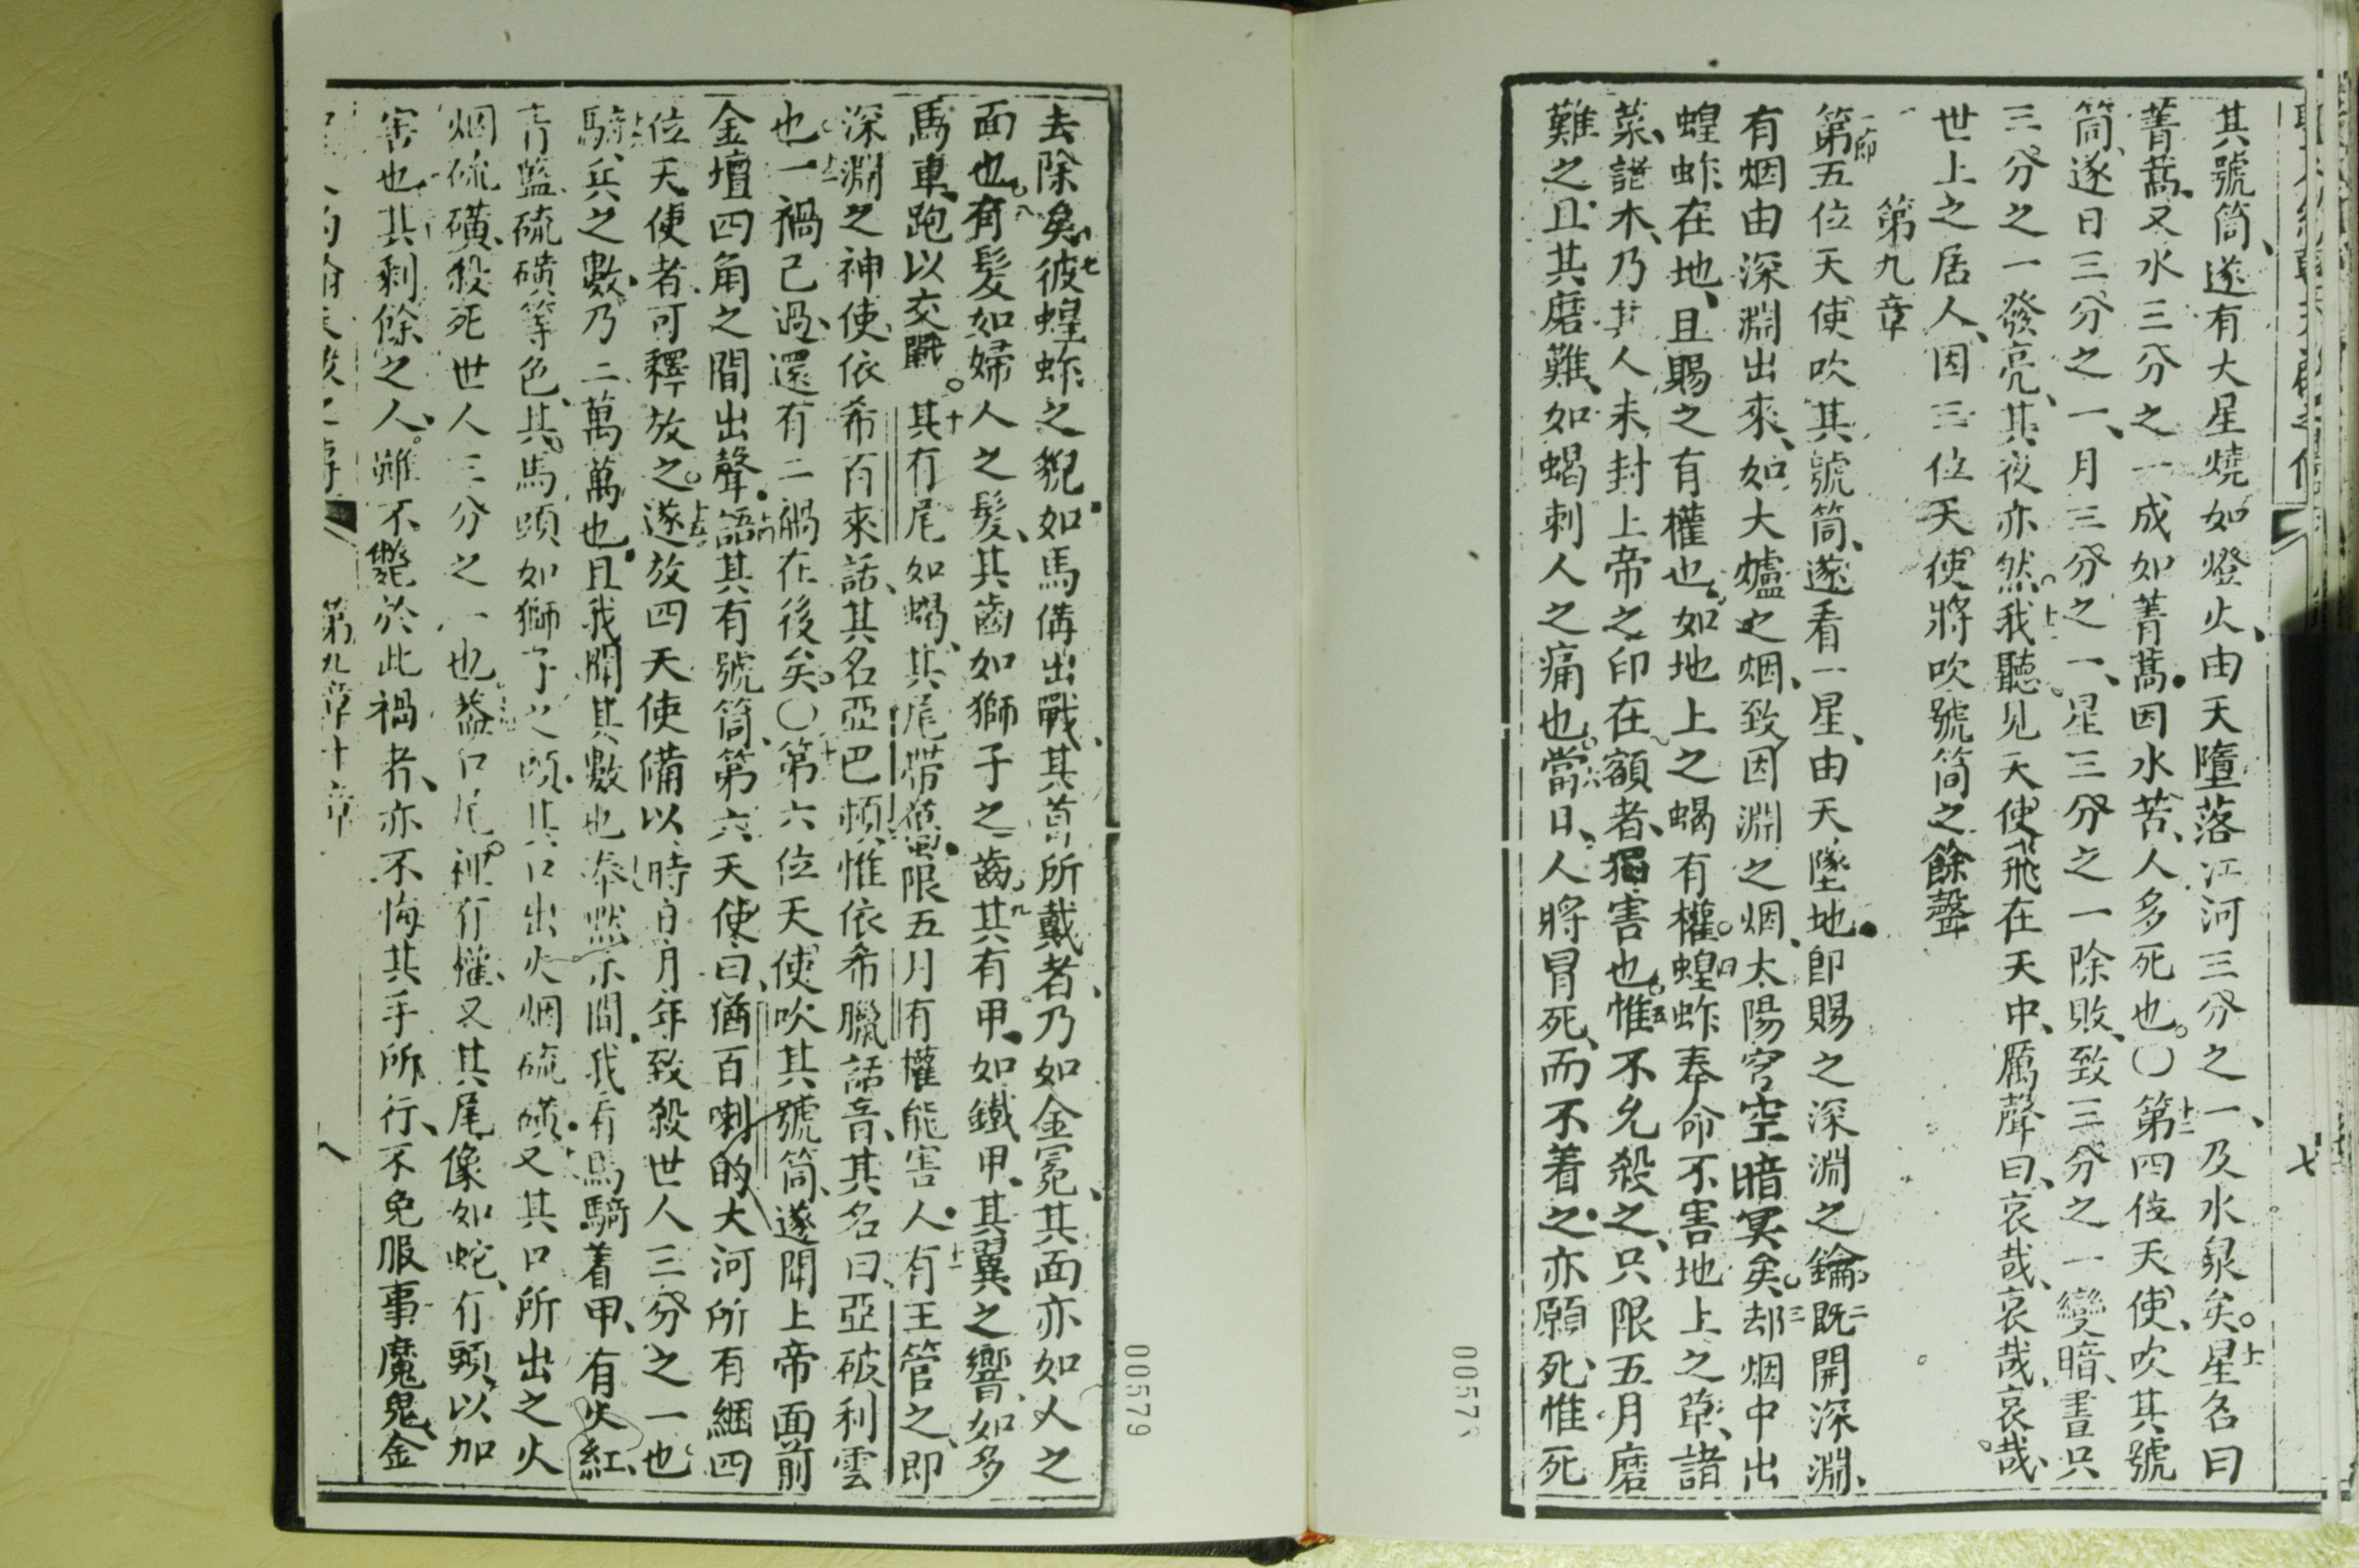 七
其號筒、遂有大星燒如燈火、由天墮落江河三分之一、及水泉矣。十一星名曰
菁蒿、又水三分之一成如菁蒿。因水苦、人多死也。〇十二第四位天使、吹其號
筒、遂日三分之一、月三分之一、星三分之一除敗、致三分之一變暗、晝只
三分之一發亮、其夜亦然。十三我聽見天使飛在天中、厲聲曰、哀哉、哀哉、哀哉、
世上之居人、因三位天使將吹號筒之餘聲
第九章
一節第五位天使吹其號筒、遂看一星、由天墜地。即賜之深淵之鑰。二既開深淵、
有烟由深淵出來、如大爐之烟、致因淵之烟、太陽穹空暗冥矣。三却烟中出
蝗蚱在地、且賜之有權也。如地上之蝎有權。四蝗蚱奉命不害地上之草、諸
菜、諸木、乃其人未封上帝之印在額者、獨害也。五惟不允殺之、只限五月磨
難之、且其磨難、如蝎刺人之痛也。六當日、人將冒死、而不着之、亦願死、惟死
00579
去除矣。七彼蝗蚱之貌。如馬備出戰、其首所戴者、乃如金冕、其面亦如人之
面也。八有髮如婦人之髮、其齒如獅子之齒。九其有甲。如鐵甲、其翼之響、如多
馬車、跑以交戰。十其有尾如蝎、其尾帶
限五月有權能害人。十一有王管之、即
深淵之神使、依希百來話、其名亞巴頓、惟依希臘話音、其名曰、亞破利雲
也。十二一禍已過、還有二禍在後矣。〇十三第六位天使吹其號筒、遂聞上帝面前
金壇四角之間出聲。十四語其有號筒、第六天使曰、猶百喇的大河所有綑四
位天使者、可釋放之。十五遂放四天使備以時日月年致殺世人三分之一也
騎兵之數、乃二萬萬也。且我聞其數也
間。我看馬騎着甲、有火紅、
青藍硫磺等色、其馬頭如獅子之頭、其口出火烟硫磺。又其口所出之火
烟硫磺、殺死世人三分之一也。蓋口尾裡有權、又其尾像如蛇、有頭、以加
害也。其剩餘之人、雖不斃於此禍者、亦不悔其手所行、不免服事魔鬼、金
第九章十章
八